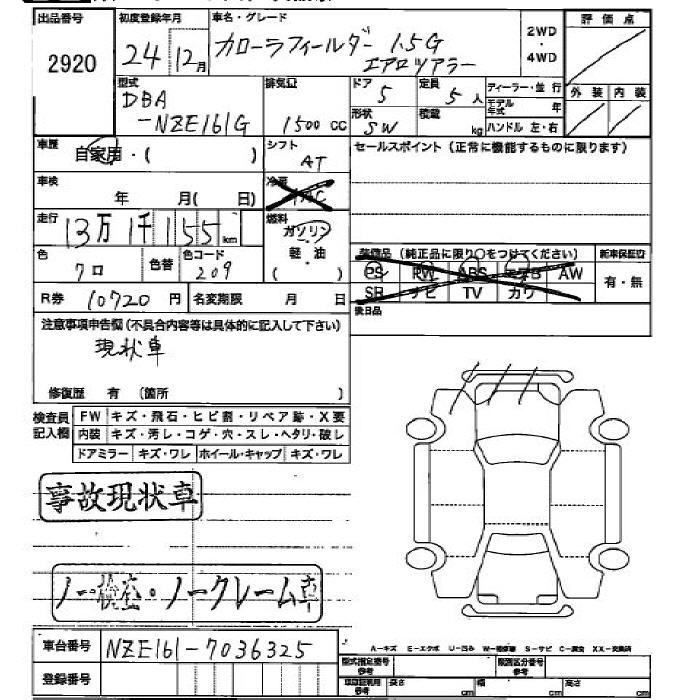 出品番号 初度登録年月 車名・グレード 評価点
2920 24 12月 カローラフィールダー 1.5G
エアロツアラー
2WD・4WD
型式 排気量 ドア 定員 ディーラー・並行 外装 内装
DBA
-NZE161G 1500cc 5 5人
モデル年式 年
形状 積載 ハンドル 左・右
SW kg
車歴 シフト セールスポイント(正常に機能するものに限ります)
自家用・( ) AT
車検 冷房
年 月( 日) AAC
走行 燃料
13万1千155km ガソリン
軽・油
( )
色 色替 色コード
クロ 209
装備品(純正品に限り○をつけてください) 新車保証書
PS PW ABS エアB AW 有・無
SR ナビ TV カワ
R券 10720円 名変期限 月 日
後日品
注意事項申告欄(不具合内容等は具体的に記入して下さい)
現状車
修復歴 有(箇所 )
検査員記入欄
FW キズ・飛石・ヒビ割・リペア跡・X要
内装 キズ・汚レ・コゲ・穴・スレ・ヘタリ・破レ
ドアミラー キズ・ワレ ホイール・キャップ キズ・ワレ
事故現状車
ノー検査・ノークレーム車
車台番号 NZE161-7036325
A-キズ E-エクボ U-凹み W-補修車 S-サビ C-腐食 XX-交換済
登録番号
型式指定番号 参考 類別区分番号 参考
車庫証明利用 参考 長さ cm 幅 cm 高さ cm